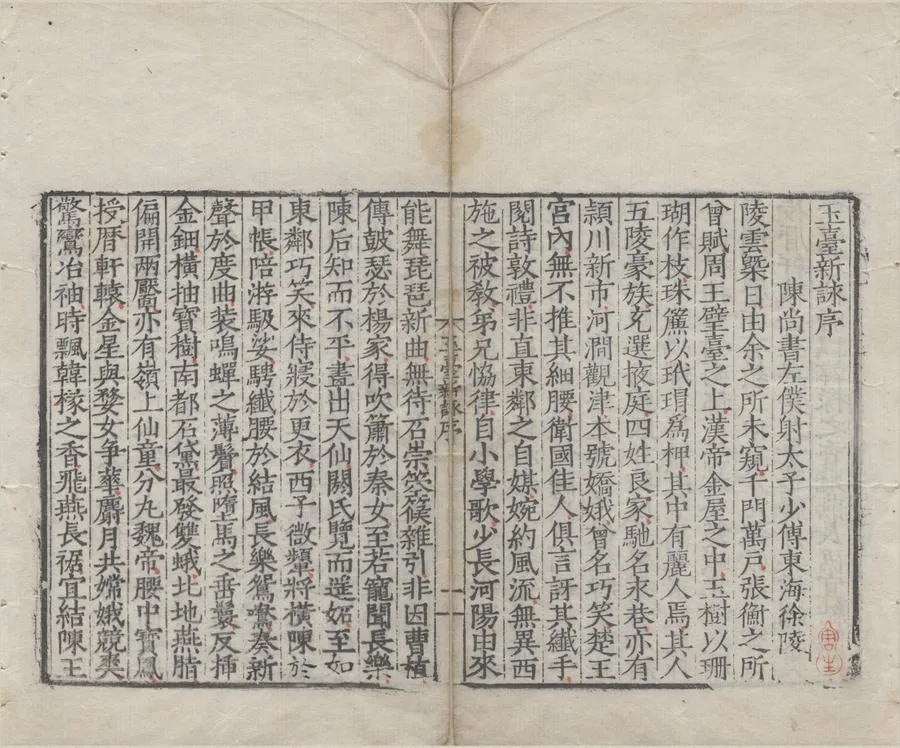 玉臺新詠序
陳尚書左僕射太子少傅東海徐陵
陵雲槩日由余之所未窺千門萬戶張衡之所
曾賦周王璧臺之上漢帝金屋之中玉樹以珊
瑚作枝珠簾以玳瑁爲柙其中有麗人焉其人
五陵豪族充選掖庭四姓良家馳名永巷亦有
潁川新市河澗觀津本號嬌娥曾名巧笑楚王
宮內無不推其細腰衛國佳人俱言訝其纖手
閱詩敦禮非直東鄰之自媒婉約風流無異西
施之被敎弟兄恊律自小學歌少長河陽由來
玉臺新詠序
一
能舞琵琶新曲無待石崇箜篌雜引非因曹植
傳鼓瑟於楊家得吹簫於秦女至若寵聞長樂
陳后知而不平畫出天仙閼氏覽而遥妬至如
東鄰巧笑來侍寢於更衣西子微顰將橫陳於
甲帳陪游馺娑騁纖腰於結風長樂鴛鴦奏新
聲於度曲装鳴蟬之薄鬢照墮馬之垂鬟反揷
金鈿橫抽寶樹南都石黛最發雙蛾北地燕脂
偏開兩靨亦有嶺上仙童分丸魏帝腰中寶鳳
授曆軒轅金星與婺女争華麝月共嫦娥競爽
驚鸞冶袖時飄韓椽之香飛燕長裾宜結陳王